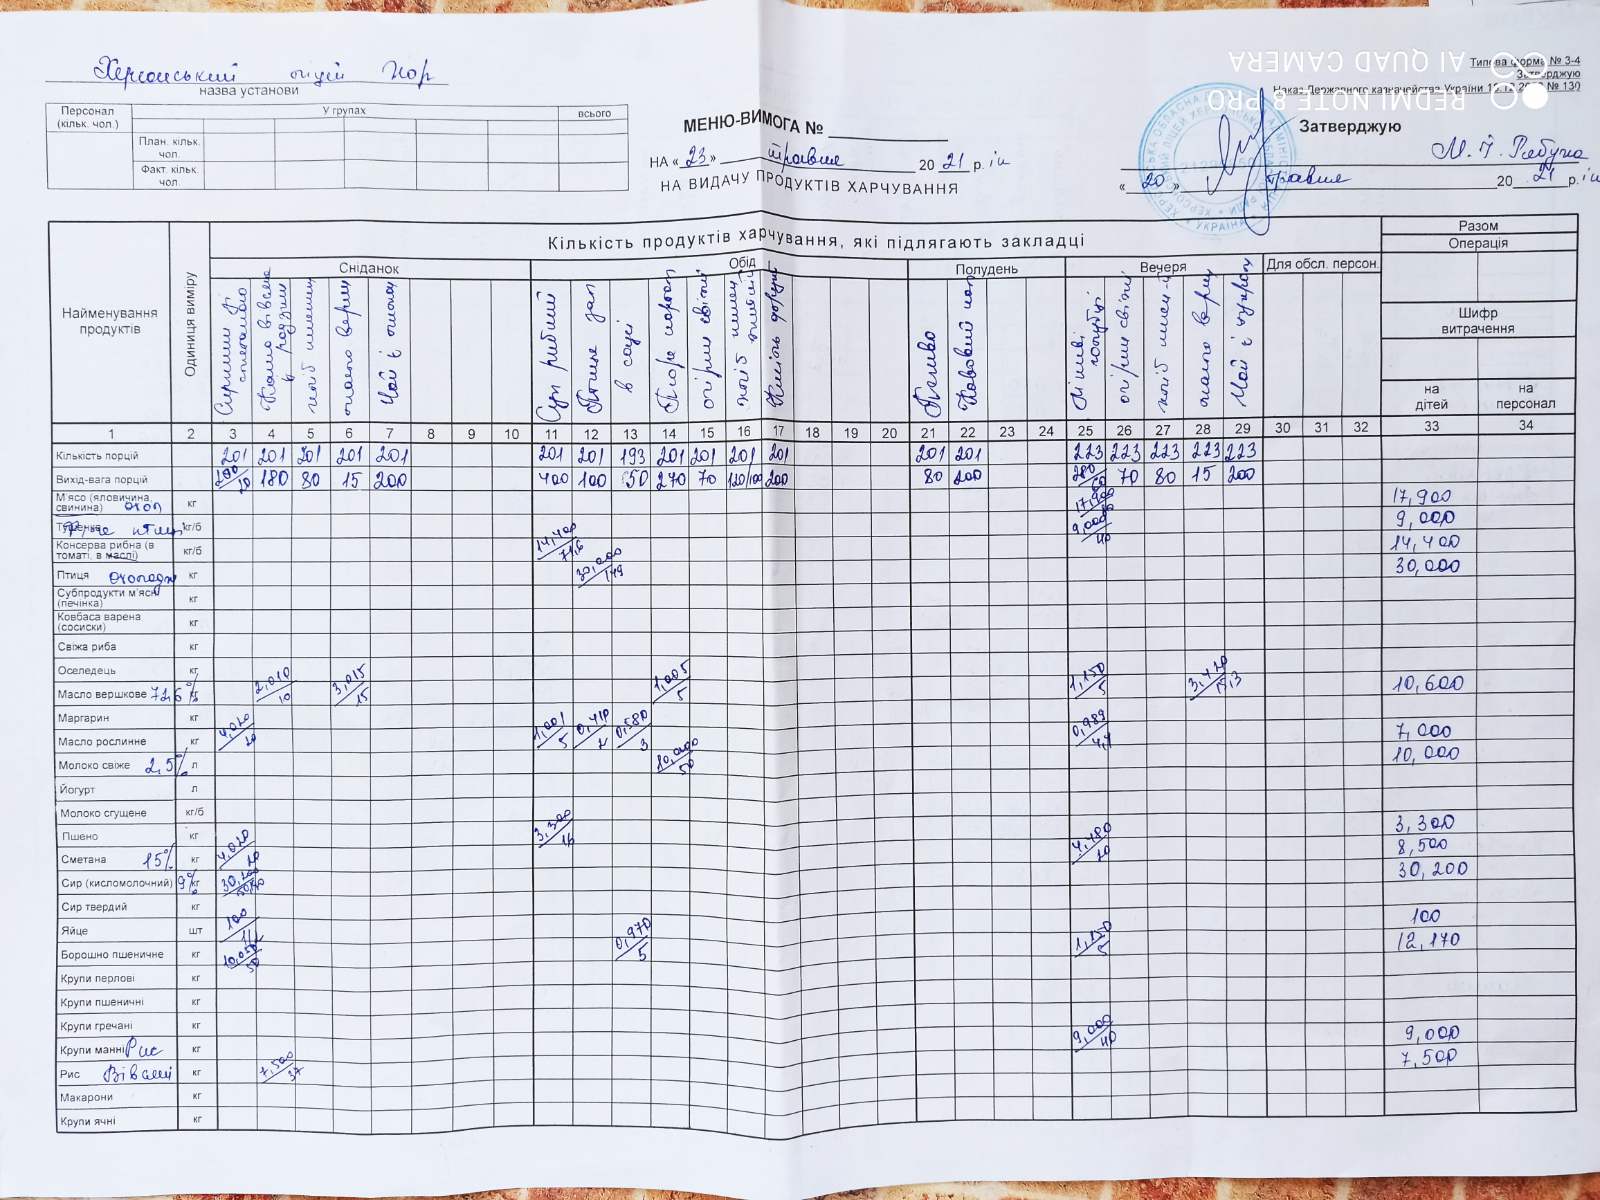 Херсонський ліцей ХОР
назва установи
Типова форма № З-4
Затверджую
Наказ Державного казначейства України № 130
AI QUAD CAMERA
REDMI NOTE 8 PRO
Персонал (кільк. чол.)
У групах
всього
План. кільк. чол.
Факт. кільк. чол.
МЕНЮ-ВИМОГА №
НА «23» травня 2021 р.
НА ВИДАЧУ ПРОДУКТІВ ХАРЧУВАННЯ
Затверджую
«20» травня 2021 р.
Найменування продуктів
Одиниця виміру
Кількість продуктів харчування, які підлягають закладці
Разом
Операція
Сніданок
Обід
Полудень
Вечеря
Для обсл. персон.
Шифр витрачення
на дітей
на персонал
Сирники зі сметаною
хліб пшенич
масло верш
Суп рибний
Птиця зап
в соусі
Пюре картоп
огірки свіжі
Печиво
Ліниві голубці
огірки свіжі
масло верш
Чай з цукром
1 2 3 4 5 6 7 8 9 10 11 12 13 14 15 16 17 18 19 20 21 22 23 24 25 26 27 28 29 30 31 32 33 34
Кількість порцій 201 201 201 201 201 201 201 193 201 201 201 201 201 201 223 223 223 223 223
Вихід-вага порцій 180 80 15 200 400 100 50 270 70 120/100 200 80 200 70 80 15 200
М'ясо (яловичина, свинина) охол кг 17,900 17,900
Тушенка кг/б 9,000/40 9,000
Консерва рибна (в томаті, в маслі) кг/б 14,400/71,6 14,400
Птиця охолодж кг 30,000/149 30,000
Субпродукти м'ясні (печінка) кг
Ковбаса варена (сосиски) кг
Свіжа риба кг
Оселедець кг
Масло вершкове 72,6% кг 2,010/10 3,015/15 1,005/5 1,150/5 3,420/15,3 10,600
Маргарин кг
Масло рослинне кг 4,020/20 1,001/5 0,410/2 0,580/3 0,989/4,4 7,000
Молоко свіже 2,5% л 10,000/50 10,000
Йогурт л
Молоко сгущене кг/б
Пшено кг 3,300/16 3,300
Сметана 15% кг 4,020/20 4,480/20 8,500
Сир (кисломолочний) 9% кг 30,200 30,200
Сир твердий кг
Яйце шт 100 100
Борошно пшеничне кг 10,050/50 0,970/5 1,150/5 12,170
Крупи перлові кг
Крупи пшеничні кг
Крупи гречані кг
Крупи манні Рис кг 9,000/40 9,000
Рис Вівсяні кг 7,500/37 7,500
Макарони кг
Крупи ячні кг